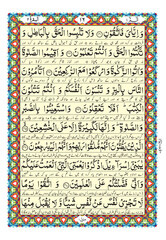 ١٢
وَّاِيَّايَ فَاتَّقُوْنِ وَلَا تَلْبِسُوا الْحَقَّ بِالْبَاطِلِ وَ
تَكْتُمُوا الْحَقَّ وَاَنْتُمْ تَعْلَمُوْنَ وَاَقِيْمُوا الصَّلٰوةَ
وَاٰتُوا الزَّكٰوةَ وَارْكَعُوْا مَعَ الرّٰكِعِيْنَ اَتَاْمُرُوْنَ
النَّاسَ بِالْبِرِّ وَتَنْسَوْنَ اَنْفُسَكُمْ وَاَنْتُمْ تَتْلُوْنَ
الْكِتٰبَ اَفَلَا تَعْقِلُوْنَ وَاسْتَعِيْنُوْا بِالصَّبْرِ
وَالصَّلٰوةِ وَاِنَّهَا لَكَبِيْرَةٌ اِلَّا عَلَى الْخٰشِعِيْنَ
الَّذِيْنَ يَظُنُّوْنَ اَنَّهُمْ مُّلٰقُوْا رَبِّهِمْ وَاَنَّهُمْ اِلَيْهِ رٰجِعُوْنَ
يٰبَنِيْ اِسْرَآءِيْلَ اذْكُرُوْا نِعْمَتِيَ الَّتِيْ اَنْعَمْتُ عَلَيْكُمْ
وَاَنِّيْ فَضَّلْتُكُمْ عَلَى الْعٰلَمِيْنَ وَاتَّقُوْا يَوْمًا
لَّا تَجْزِيْ نَفْسٌ عَنْ نَّفْسٍ شَيْئًا وَّلَا يُقْبَلُ مِنْهَا